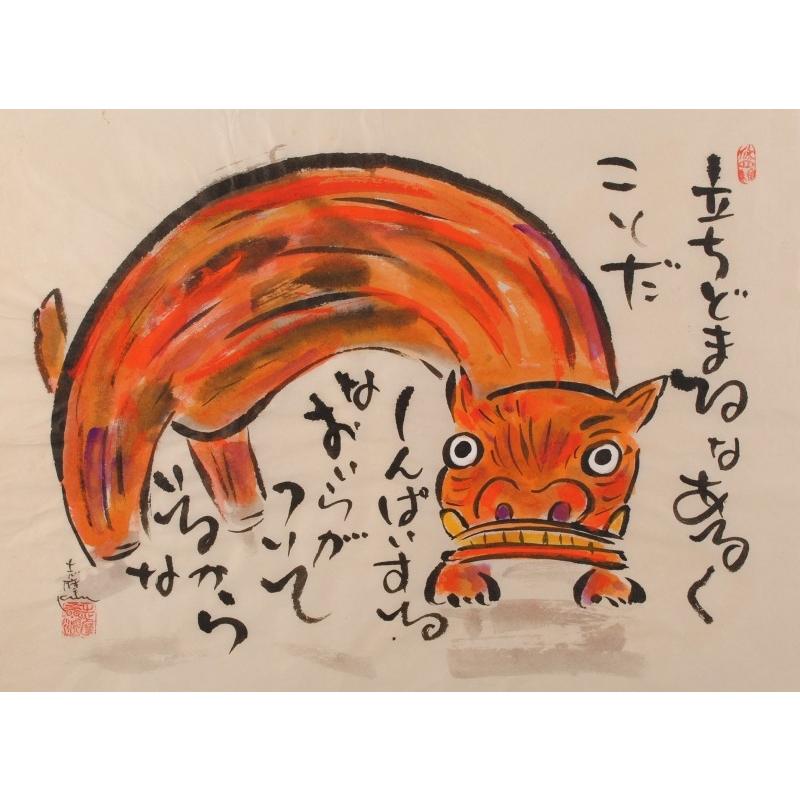 立ちどまるなあるく
ことだ
しんぱいする
なおいらが
ついて
いるから
な